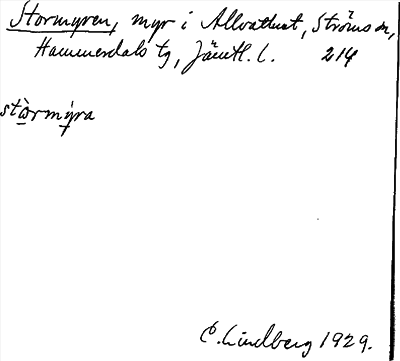 Stormyren, myr i Allvattnet, Ströms sn,
Hammerdals tg, Jämtl. l. 214
stòrmýra
C. Lindberg 1929.